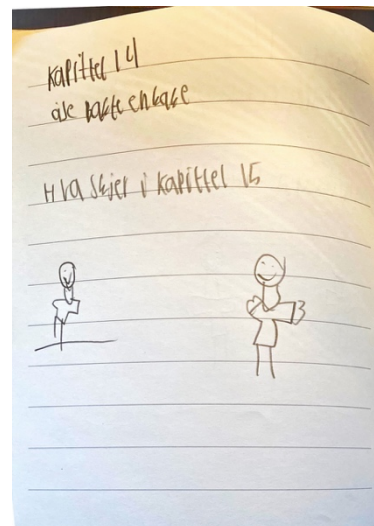 Kapittel 14
åse bakte en kake
Hva skjer i kapittel 15